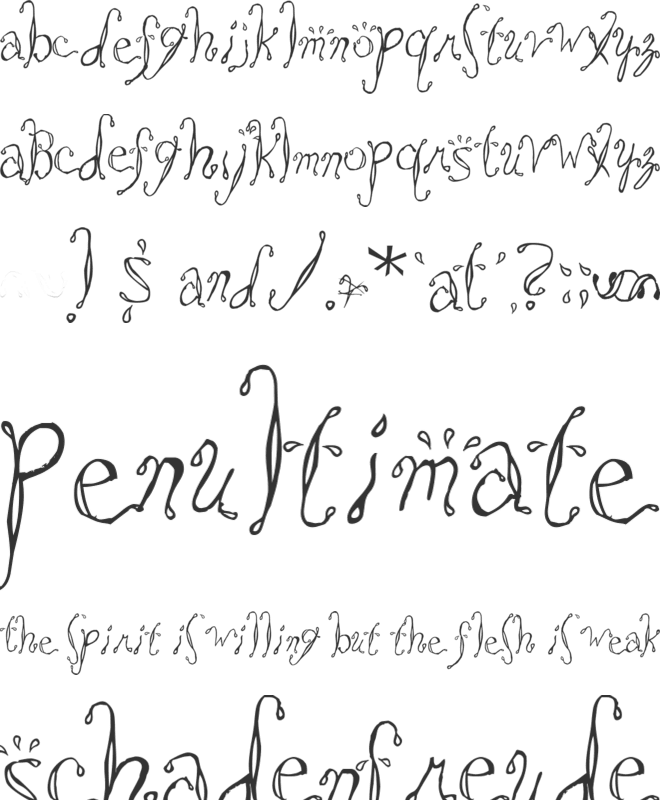 abcdefghijklmnopqrstuvwxyz
aBcdefghijklmnopqrstuvwxyz
! $ and / . * 'at' , ? : ;
penultimate
the spirit is willing but the flesh is weak
schadenfreude